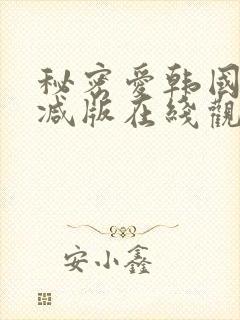 秘密爱韩国
减版在线观
安小鑫